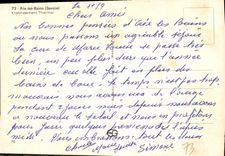 73 - Aix-les-Bains (Savoie)
le 11/9
Chers Amis
Nos bonnes pensées d'Aix les Bains
ou nous passons un agréable séjour
la cure de Marie Louise se passe très
bien, un peu plus dure que l'année
dernière car elle fait en plus des
de boue. le temps n'est pas trop
mauvais nous avons eu de l'orage
pendant 2 jours mais depuis
le soleil et nous en profitons
pour faire quelques promenades l'après
midi. Nous vous embrassons tout les deux
Marie Louise
Simone